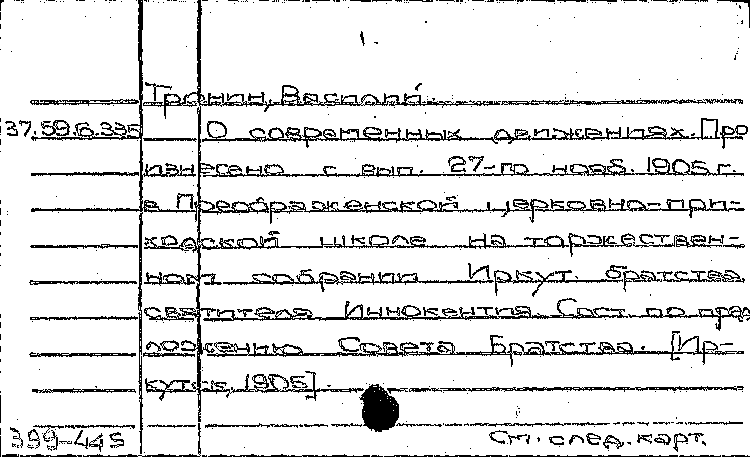 1.
Тронин, Василий.
37.59.6.335 О современных движениях. Про
изнесено с вып. 27-го нояб. 1905 г.
в Преображенской церковно-при-
ходской школе на торжествен-
ном собрании Иркут. братства
святителя Иннокентия. Сост. по пред
ложению Совета Братства. [Ир-
кутск, 1905].
399-445 См. след. карт.